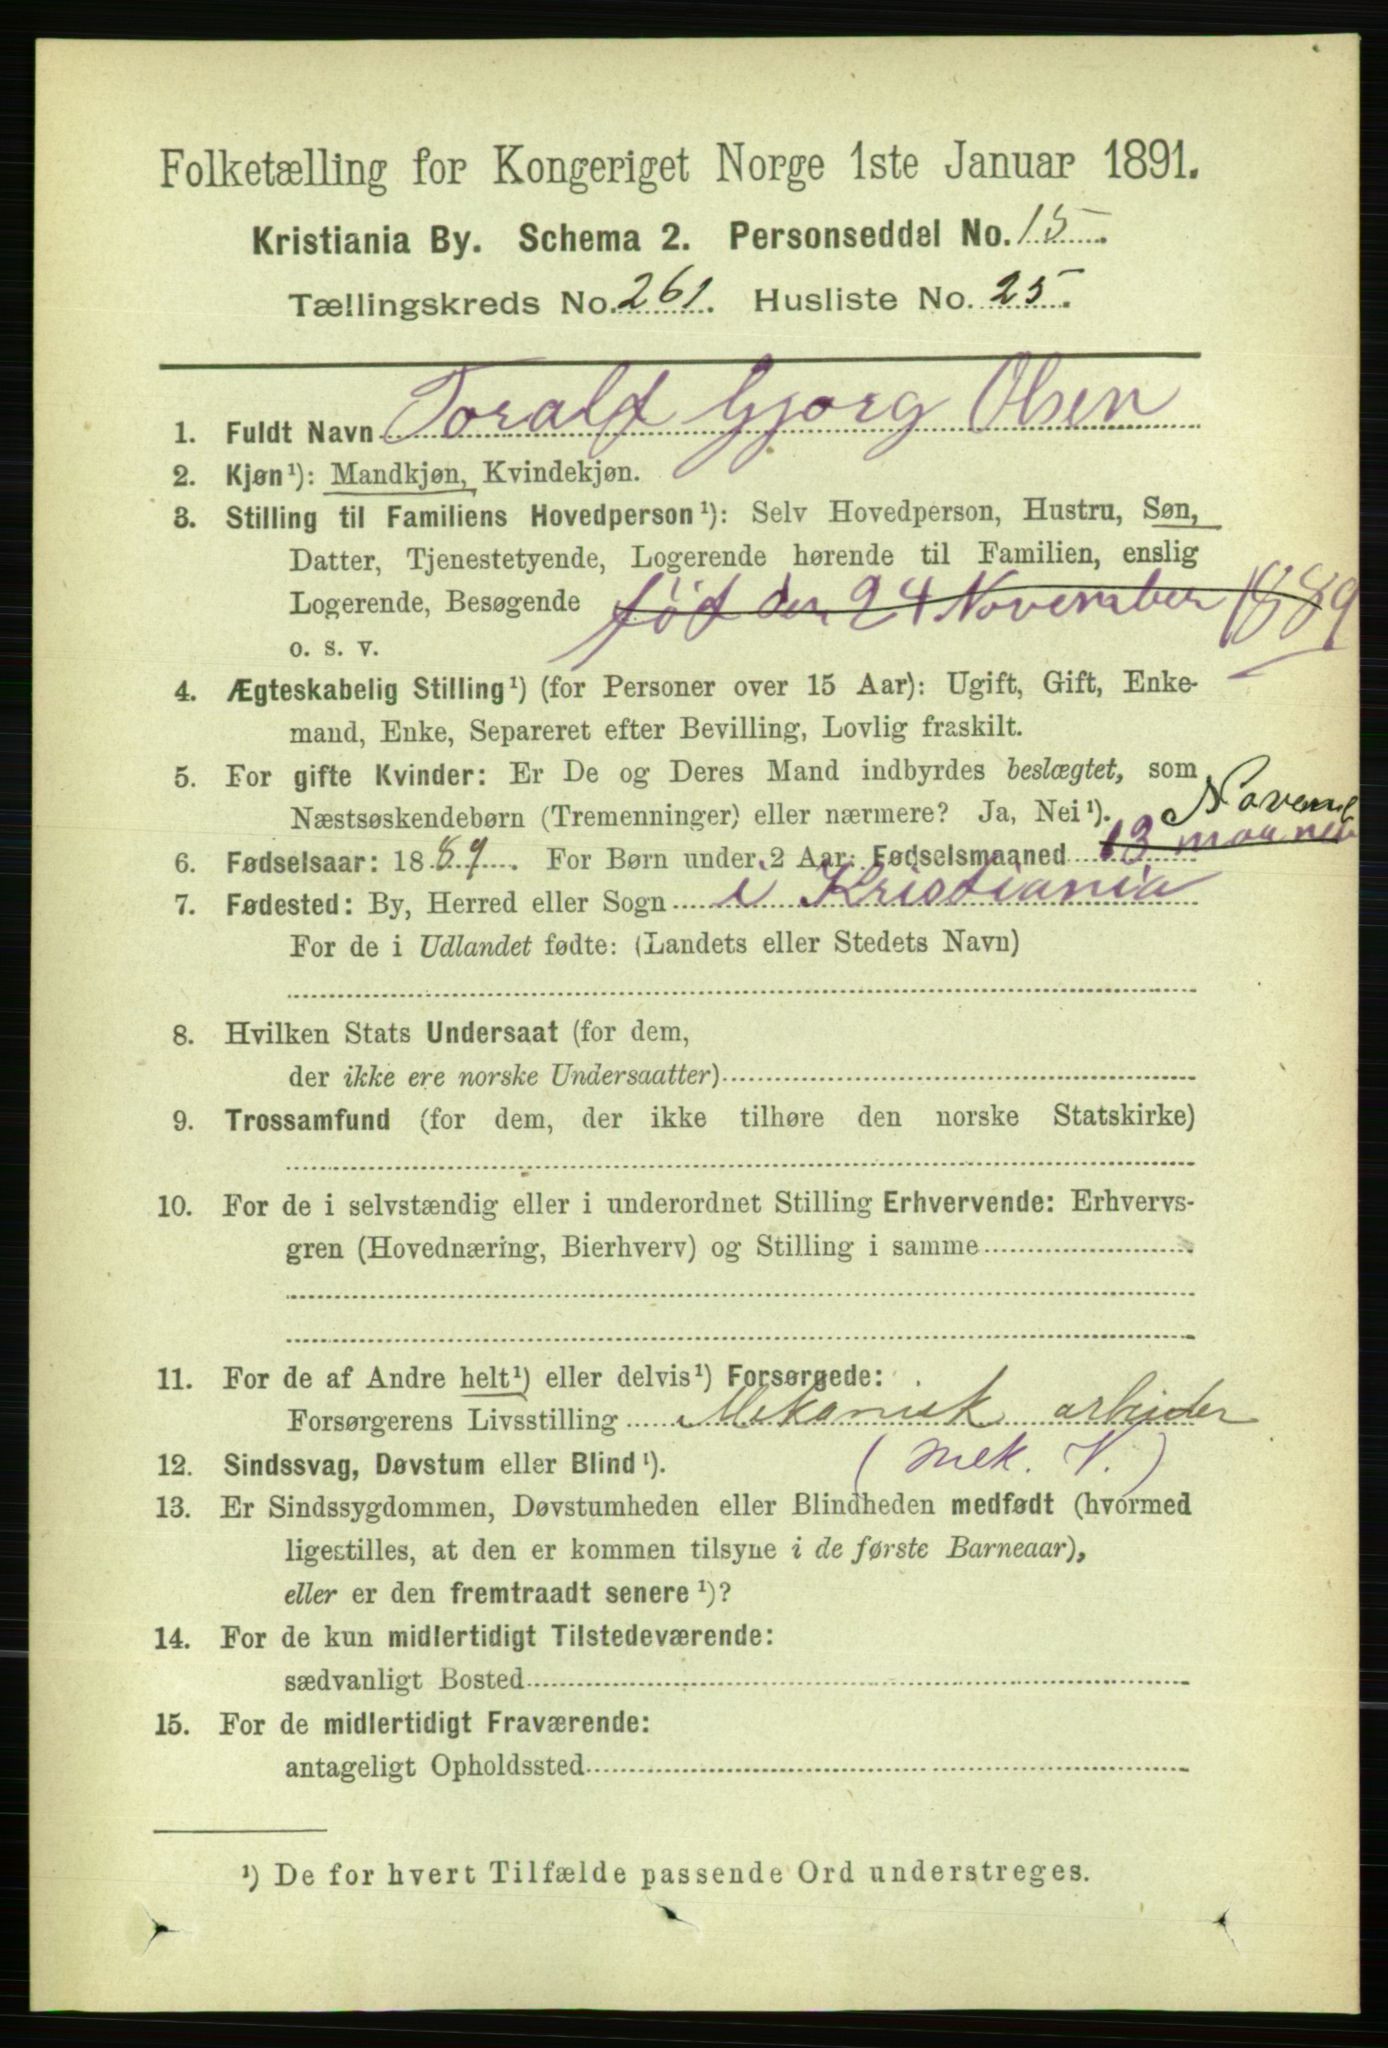 Folketælling for Kongeriget Norge 1ste Januar 1891.
Kristiania By. Schema 2. Personseddel No. 15.
Tællingskreds No. 261. Husliste No. 25.
1. Fuldt Navn Toralf Gjorg Olsen
2. Kjøn¹): Mandkjøn, Kvindekjøn.
3. Stilling til Familiens Hovedperson¹): Selv Hovedperson, Hustru, Søn,
Datter, Tjenestetyende, Logerende hørende til Familien, enslig
Logerende, Besøgende født den 24 November 1889
o. s. v.
4. Ægteskabelig Stilling¹) (for Personer over 15 Aar): Ugift, Gift, Enke-
mand, Enke, Separeret efter Bevilling, Lovlig fraskilt.
5. For gifte Kvinder: Er De og Deres Mand indbyrdes beslægtet, som
Næstsøskendebørn (Tremenninger) eller nærmere? Ja, Nei¹).
Novemb
6. Fødselsaar: 1889. For Børn under 2 Aar: Fødselsmaaned 13 maaneder
7. Fødested: By, Herred eller Sogn i Kristiania
For de i Udlandet fødte: (Landets eller Stedets Navn)
8. Hvilken Stats Undersaat (for dem,
der ikke ere norske Undersaatter)
9. Trossamfund (for dem, der ikke tilhøre den norske Statskirke)
10. For de i selvstændig eller i underordnet Stilling Erhvervende: Erhvervs-
gren (Hovednæring, Bierhverv) og Stilling i samme
11. For de af Andre helt¹) eller delvis¹) Forsørgede:
Forsørgerens Livsstilling Mekanisk arbeider
12. Sindssvag, Døvstum eller Blind¹). (Mek. V.)
13. Er Sindssygdommen, Døvstumheden eller Blindheden medfødt (hvormed
ligestilles, at den er kommen tilsyne i de første Barneaar),
eller er den fremtraadt senere¹)?
14. For de kun midlertidigt Tilstedeværende:
sædvanligt Bosted
15. For de midlertidigt Fraværende:
antageligt Opholdssted
¹) De for hvert Tilfælde passende Ord understreges.